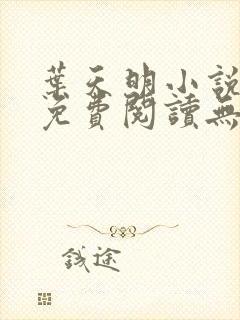 葉天明小說
免費閱讀無
錢途